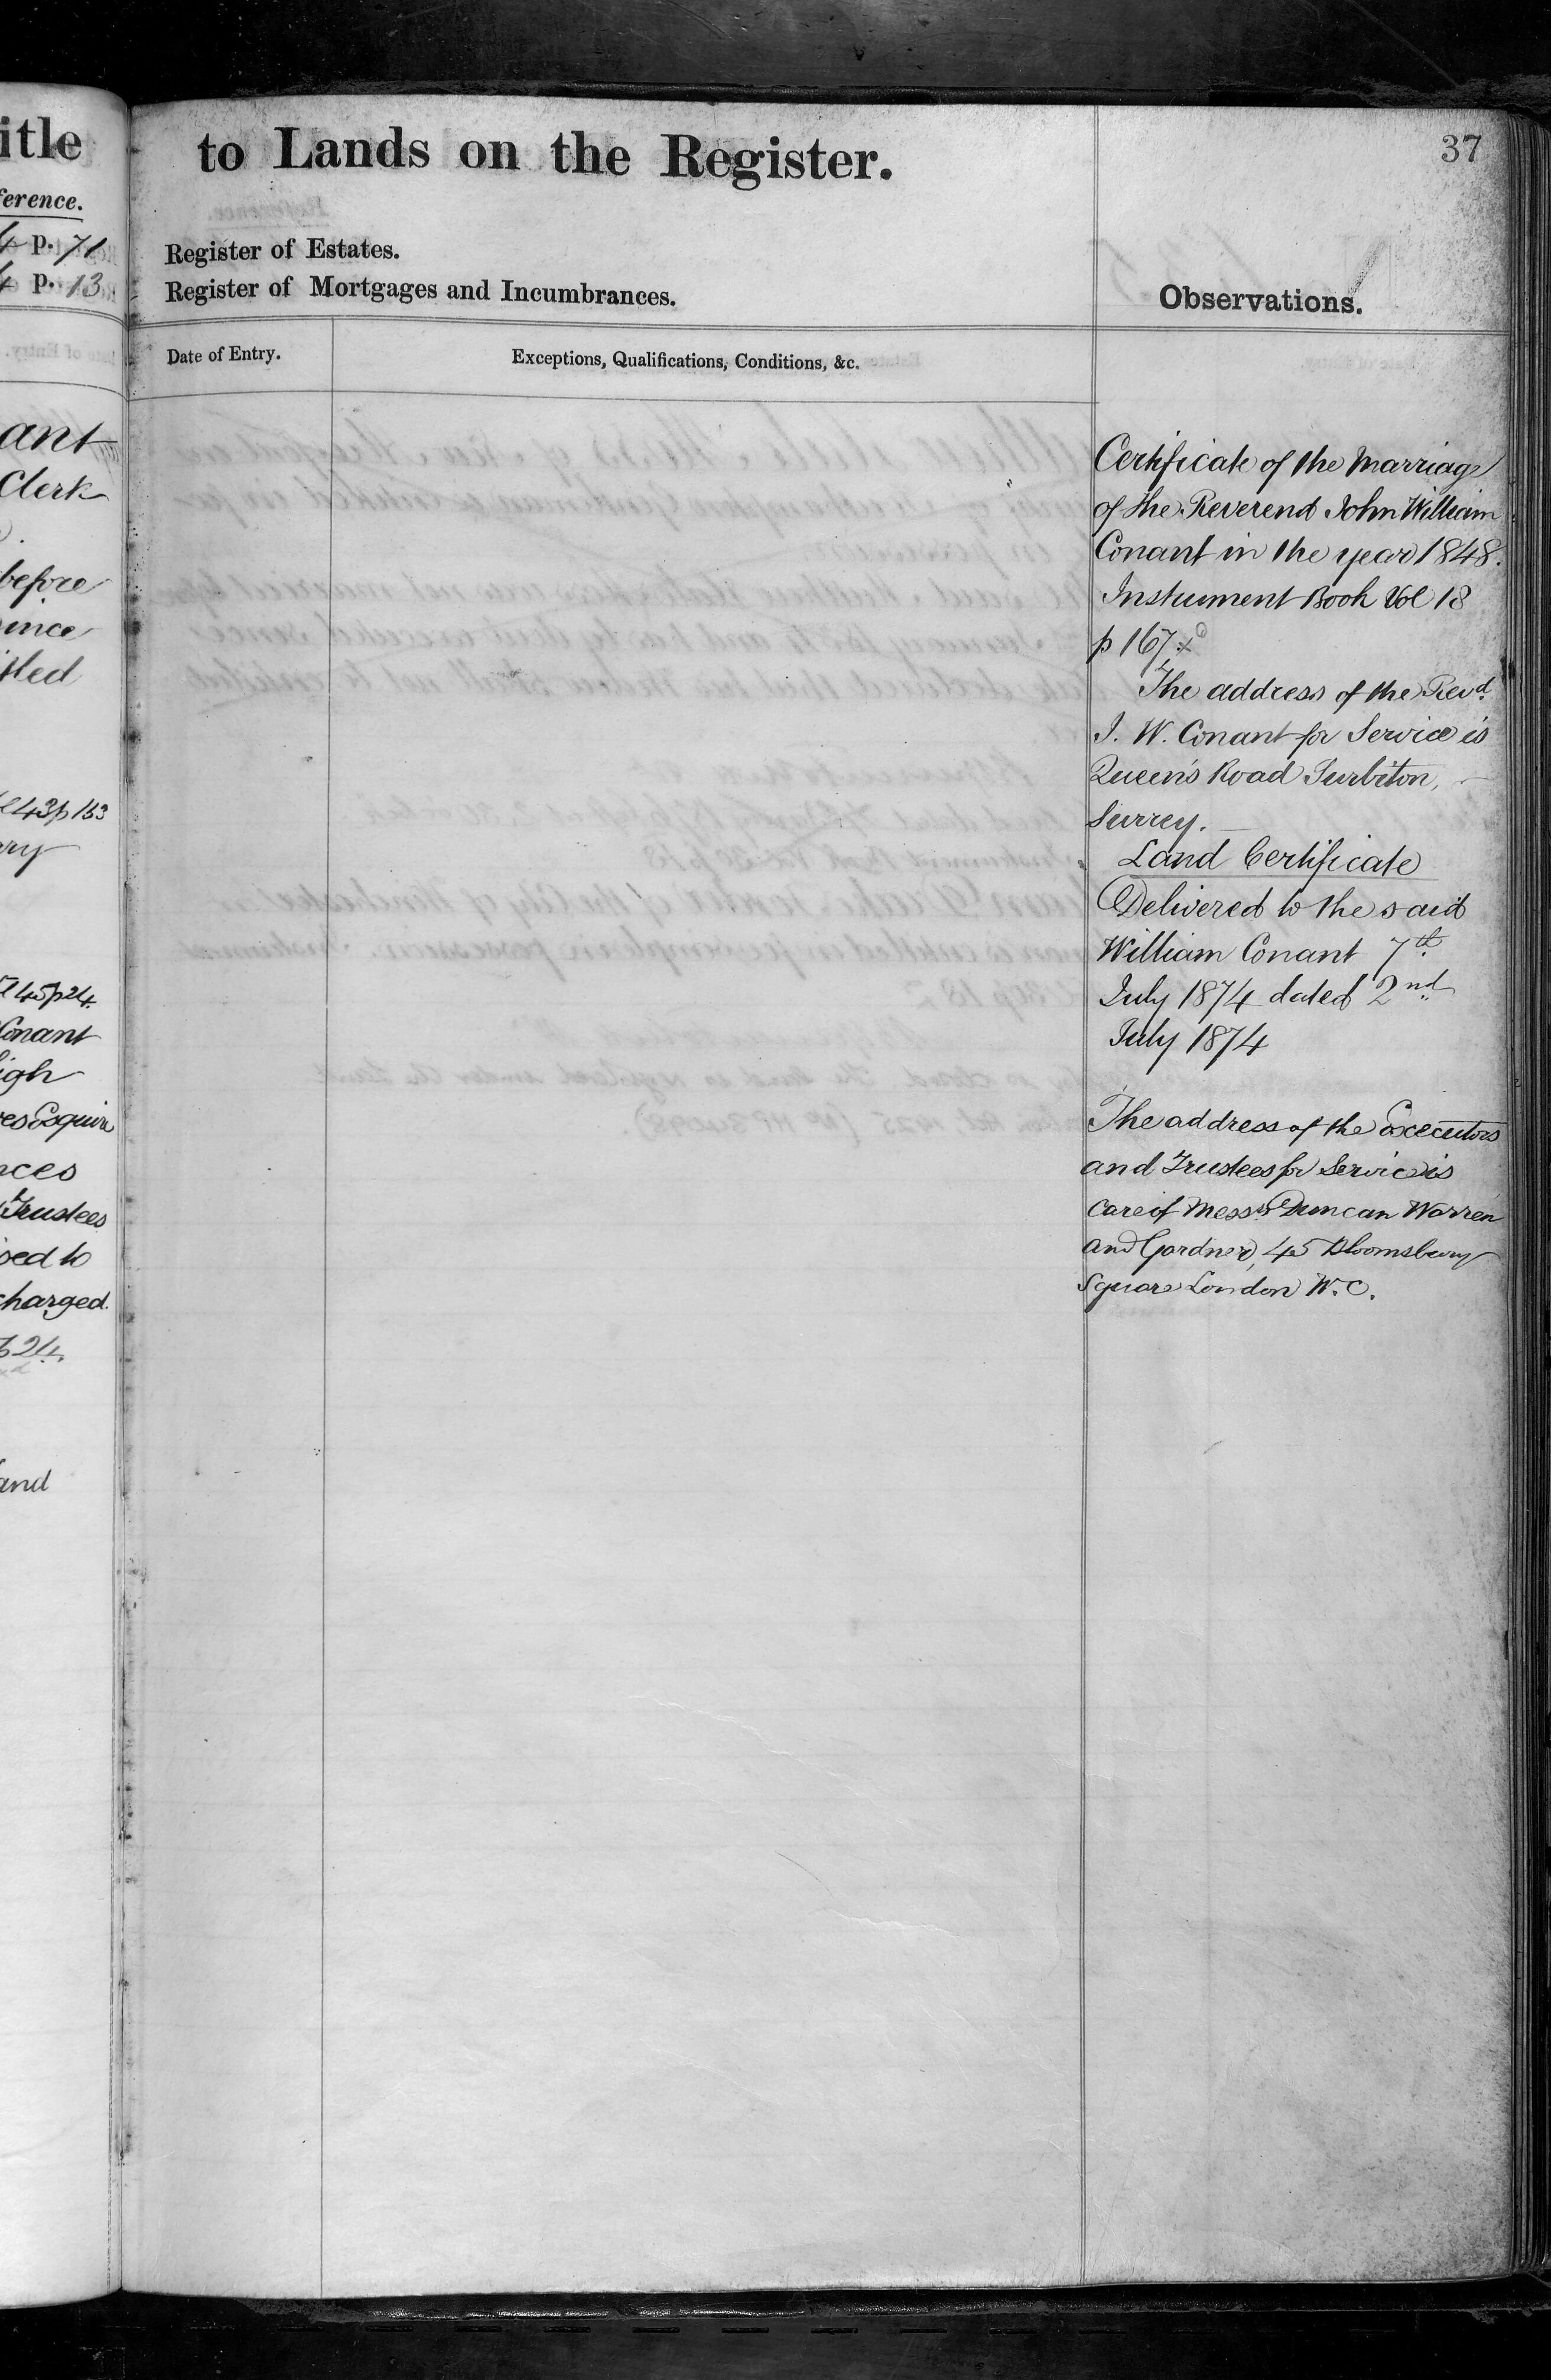 itle
ference.
4 p. 71
4 p. 13
ant
Clerk
before
ince
tled
43 p 153
ry
45 p 24.
Conant
igh
res Esquire
nces
Trustees
sed to
charged.
24.
and
to Lands on the Register.
37
Register of Estates.
Register of Mortgages and Incumbrances.
Observations.
Date of Entry.
Exceptions, Qualifications, Conditions, &c.
Certificate of the Marriage
of the Reverend John William
Conant in the year 1848.
Instrument Book Vol 18
p 167
The address of the Revd.
J. W. Conant for Service is
Queen's Road Surbiton,
Surrey.
Land Certificate
Delivered to the said
William Conant 7th
July 1874 dated 2nd
July 1874
The address of the Executors
and Trustees for Service is
care of Messrs Duncan Warren
and Gardner, 45 Bloomsbury
Square London W.C.